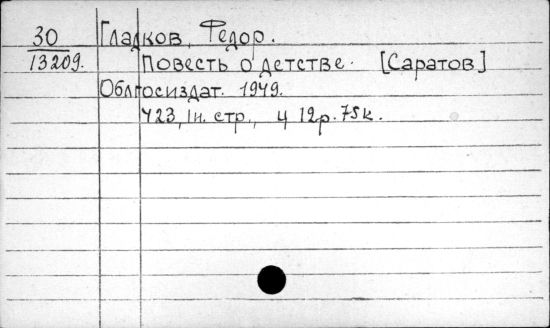 30 Гладков, Федор.
13209. Повесть о детстве. [Саратов]
Облгосиздат. 1949.
423, 1н. стр., ц 12р. 75к.